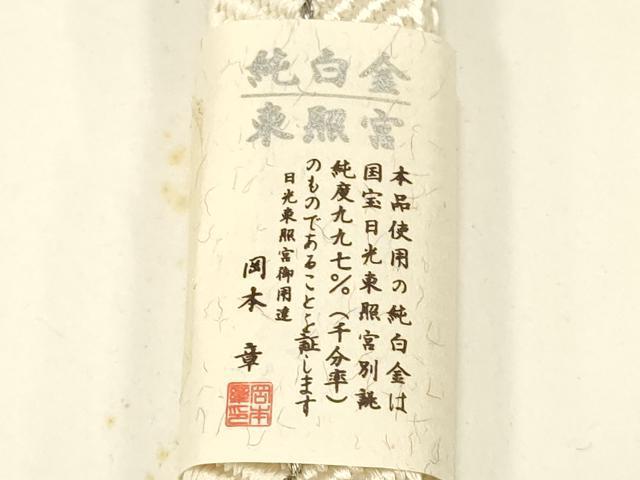 純白金
東照宮
本品使用の純白金は
国宝日光東照宮別誂
純度九九七％（千分率）
のものであることを証します
日光東照宮御用達
岡本章
岡本章印